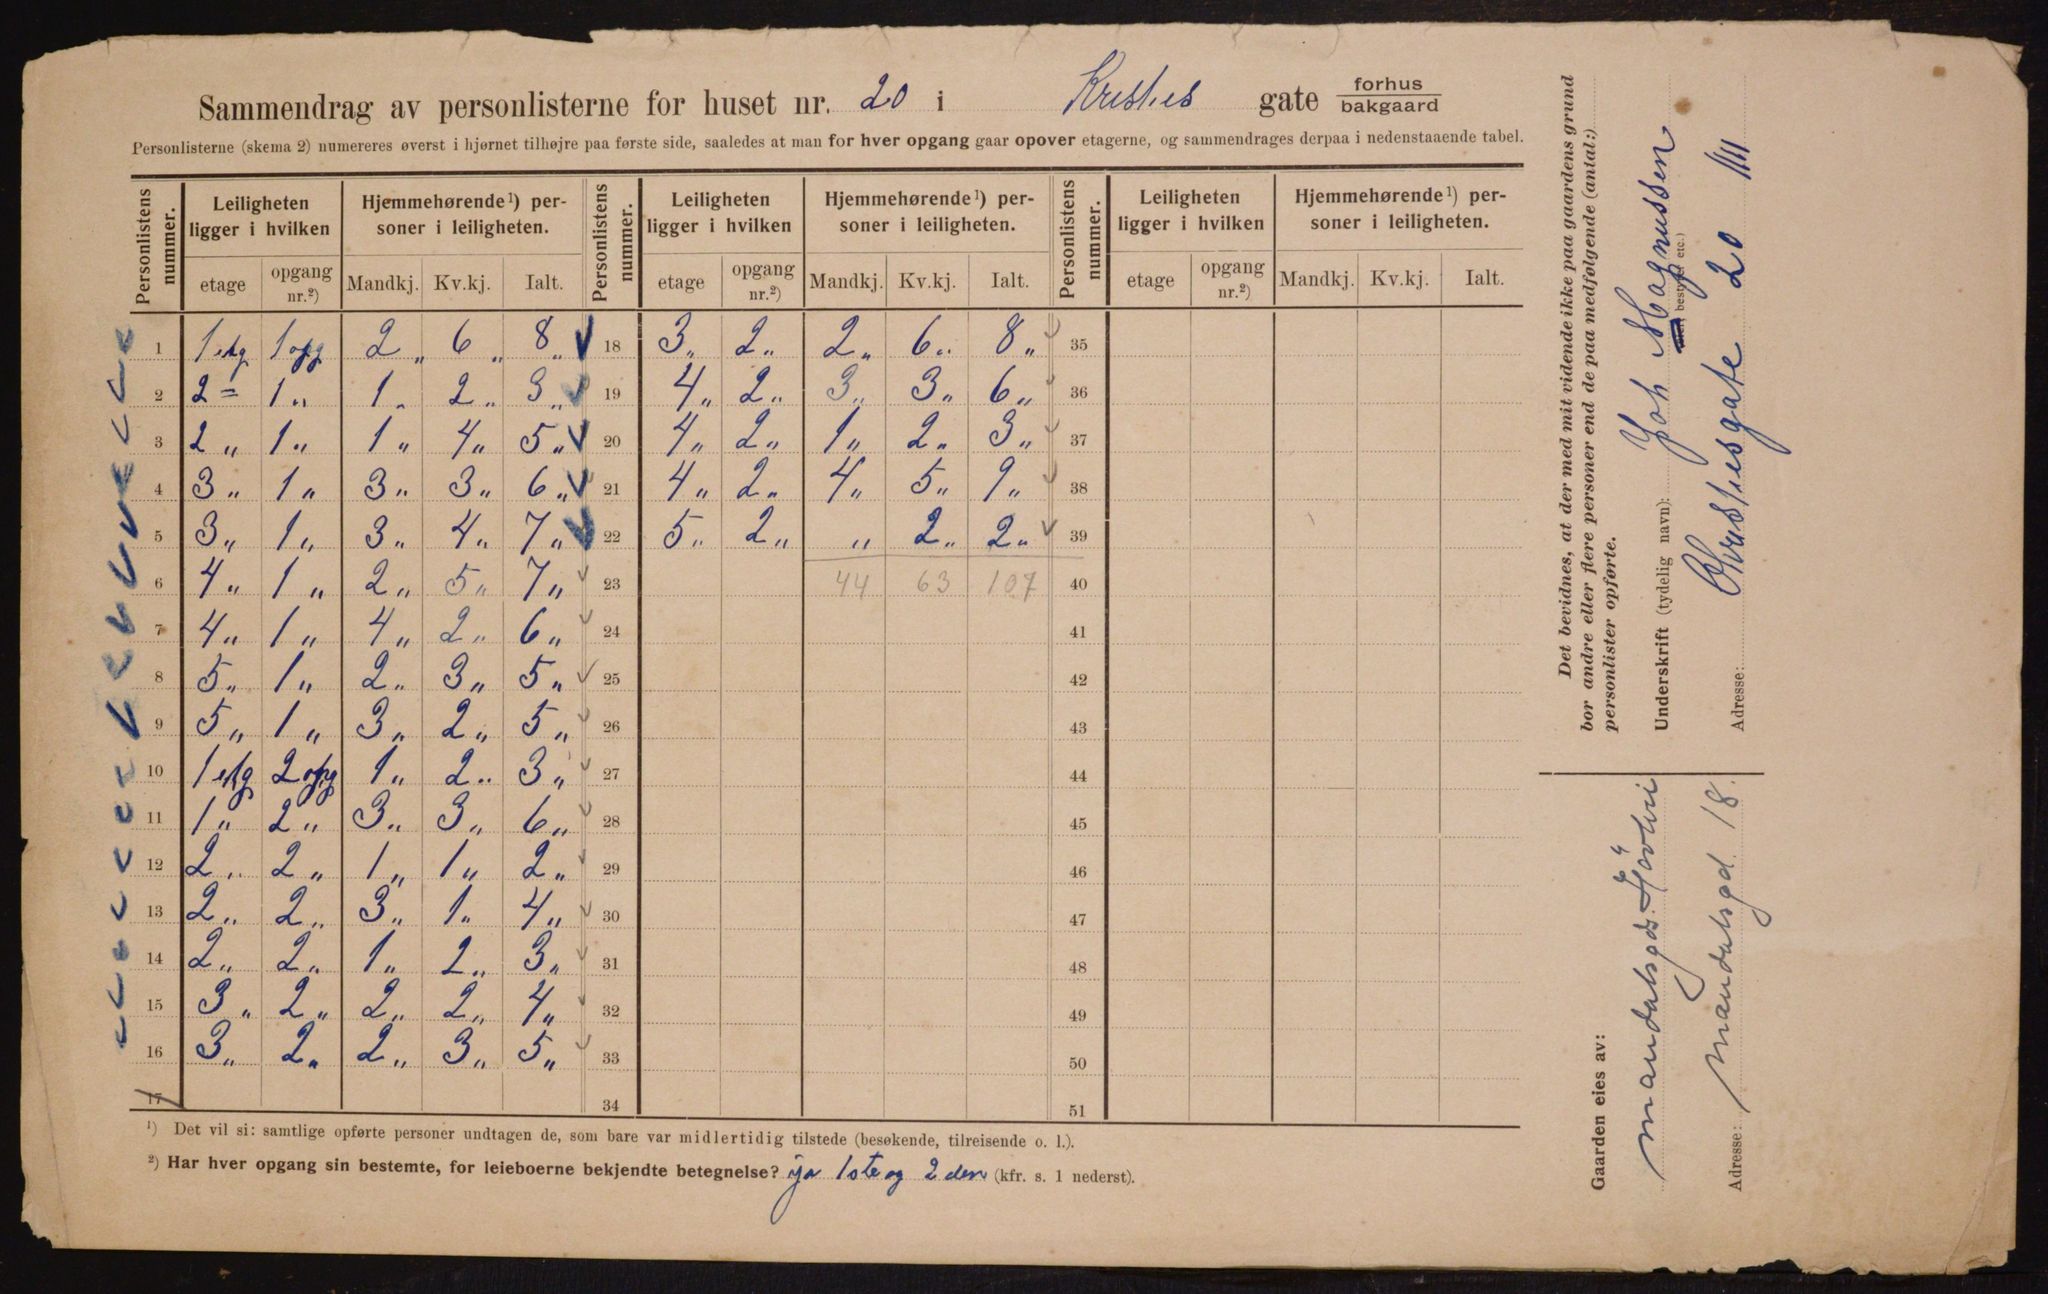 Sammendrag av personlisterne for huset nr. 20 i Kristies gate forhus bakgaard
Personlisterne (skema 2) numereres øverst i hjørnet tilhøjre paa første side, saaledes at man for hver opgang gaar opover etagerne, og sammendrages derpaa i nedenstaaende tabel.
Personlistens nummer. Leiligheten ligger i hvilken Hjemmehørende ¹) personer i leiligheten. Personlistens nummer. Leiligheten ligger i hvilken Hjemmehørende ¹) personer i leiligheten. Personlistens nummer. Leiligheten ligger i hvilken Hjemmehørende ¹) personer i leiligheten.
etage opgang nr.²) Mandkj. Kv.kj. Ialt. etage opgang nr.²) Mandkj. Kv.kj. Ialt. etage opgang nr.²) Mandkj. Kv.kj. Ialt.
1 1 etg 1 opg 2 „ 6 „ 8 „ 18 3 „ 2 „ 2 „ 6 „ 8 „ 35
2 2 = 1 „ 1 „ 2 „ 3 „ 19 4 „ 2 „ 3 „ 3 „ 6 „ 36
3 2 „ 1 „ 1 „ 4 „ 5 „ 20 4 „ 2 „ 1 „ 2 „ 3 „ 37
4 3 „ 1 „ 3 „ 3 „ 6 „ 21 4 „ 2 „ 4 „ 5 „ 9 „ 38
5 3 „ 1 „ 3 „ 4 „ 7 „ 22 5 „ 2 „ „ 2 „ 2 „ 39
6 4 „ 1 „ 2 „ 5 „ 7 „ 23 44 63 107 40
7 4 „ 1 „ 4 „ 2 „ 6 „ 24 41
8 5 „ 1 „ 2 „ 3 „ 5 „ 25 42
9 5 „ 1 „ 3 „ 2 „ 5 „ 26 43
10 1 etg 2 opg 1 „ 2 „ 3 „ 27 44
11 1 „ 2 „ 3 „ 3 „ 6 „ 28 45
12 2 „ 2 „ 1 „ 1 „ 2 „ 29 46
13 2 „ 2 „ 3 „ 1 „ 4 „ 30 47
14 2 „ 2 „ 1 „ 2 „ 3 „ 31 48
15 3 „ 2 „ 2 „ 2 „ 4 „ 32 49
16 3 „ 2 „ 2 „ 3 „ 5 „ 33 50
17 34 51
¹) Det vil si: samtlige opførte personer undtagen de, som bare var midlertidig tilstede (besøkende, tilreisende o. l.).
²) Har hver opgang sin bestemte, for leieboerne bekjendte betegnelse? ja 1ste og 2den (kfr. s. 1 nederst).
Det bevidnes, at der med mit vidende ikke paa gaardens grund
bor andre eller flere personer end de paa medfølgende (antal:)
personlister opførte.
Underskrift (tydelig navn): Joh Magnussen
bestyrer etc.)
Adresse: Kristiesgate 20 III
Gaarden eies av:
Mandalsgds
Adresse: Mandalsgd. 18.